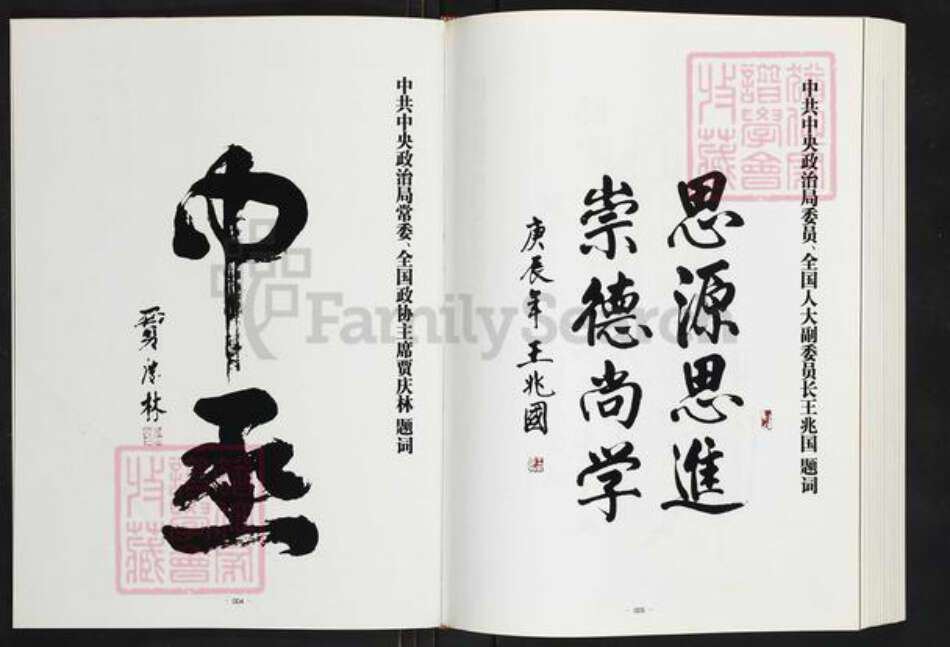 中共中央政治局委员、全国人大副委员长王兆国 题词
思源思進
崇德尚学
庚辰年 王兆國
- 005 -
中共中央政治局常委、全国政协主席贾庆林 题词
中丞
贾庆林
- 004 -
FamilySearch
譜學會
收藏